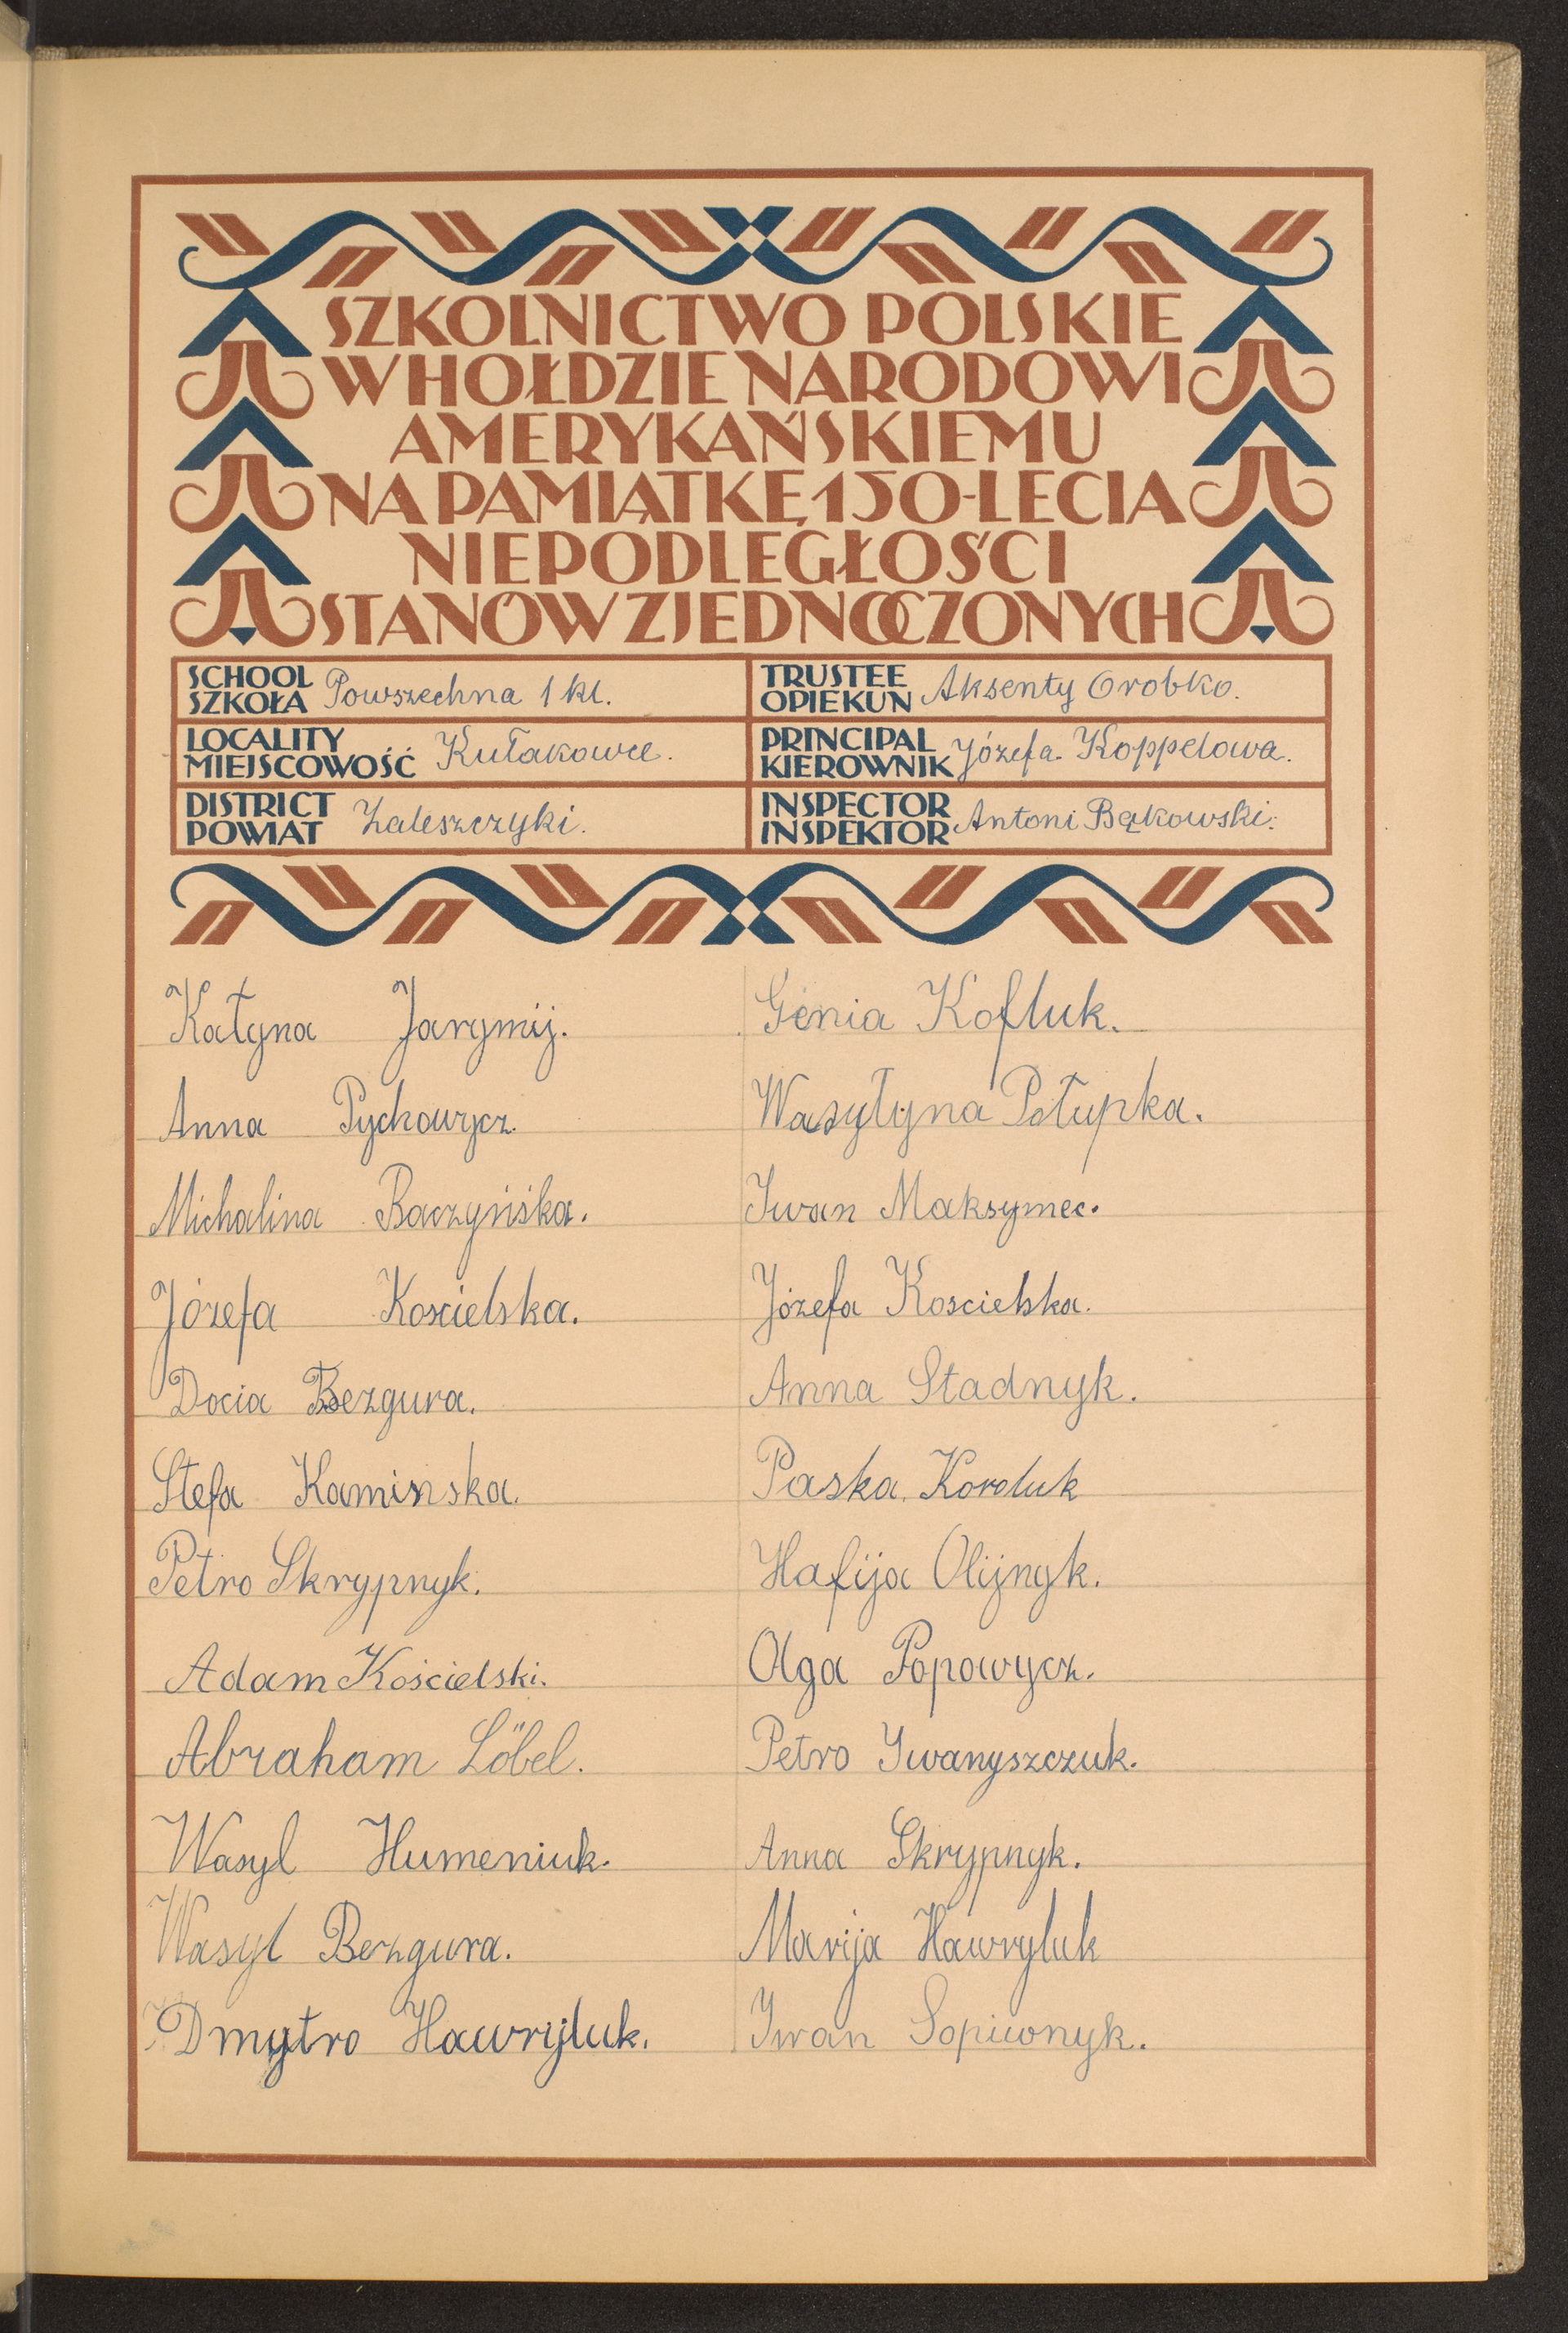 SZKOLNICTWO POLSKIE
W HOŁDZIE NARODOWI
AMERYKAŃSKIEMU
NA PAMIĄTKĘ 150-LECIA
NIEPODLEGŁOŚCI
STANÓW ZJEDNOCZONYCH
SCHOOL
SZKOŁA Powszechna 1 kl.
TRUSTEE
OPIEKUN Aksenty Orobko.
LOCALITY
MIEJSCOWOŚĆ Kułakowce.
PRINCIPAL
KIEROWNIK Józefa Koppelowa.
DISTRICT
POWIAT Zaleszczyki.
INSPECTOR
INSPEKTOR Antoni Bąkowski.
Katyna Jarymij.
Anna Pychowycz.
Michalina Baczyńśka.
Józefa Koscielska.
Docia Bezgura.
Stefa Kaminska.
Petro Skrypnyk.
Adam Kościelski.
Abraham Löbel.
Wasyl Humeniuk.
Wasyl Bezgura.
Dmytro Hawryluk.
Genia Kofluk.
Wasyłyna Połupka.
Iwan Maksymec.
Józefa Koscielska.
Anna Stadnyk.
Paska Korduk
Hafija Olijnyk.
Olga Popowycz.
Petro Iwanyszczuk.
Anna Skrypnyk.
Marija Hawryluk
Iwan Sopiwnyk.